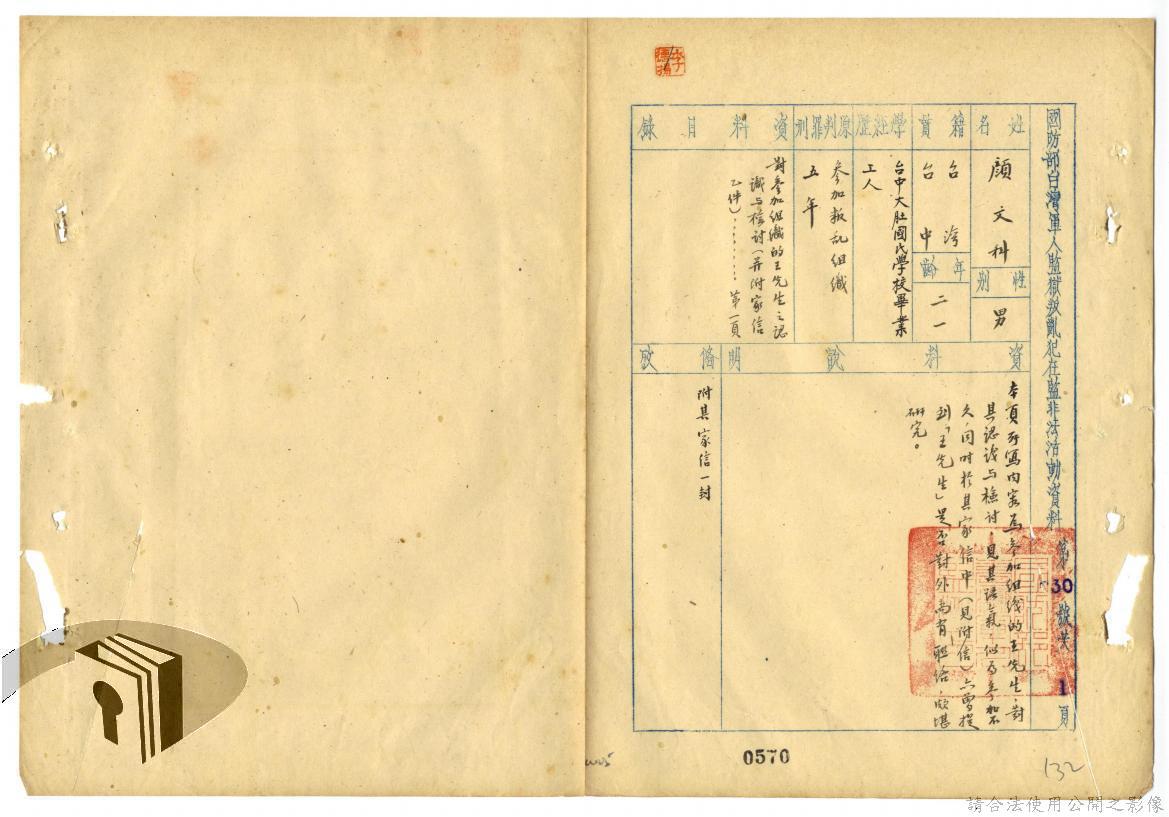 國防部台灣軍人監獄叛亂犯在監非法活動資料第30號共1頁
姓名
顏文科
性別
男
籍貫
台灣
台中
年齡
二一
學經歷
台中大肚國民學校畢業
工人
原判罪刑
參加叛乱組織
五年
資料目錄
對參加組織的王先生之認
識与檢討(并附家信
乙件)‧‧‧‧‧‧‧第一頁
資料說明
本頁所寫内容為參加組織的王先生,對
其認識与檢討,見其語氣,似乃參加不
久,同時於其家信中(見附信)亦曾提
到「王先生」是否對外尚有联絡,頗堪
研究。
備攷
附其家信一封
0570
132
請合法使用公開之影像